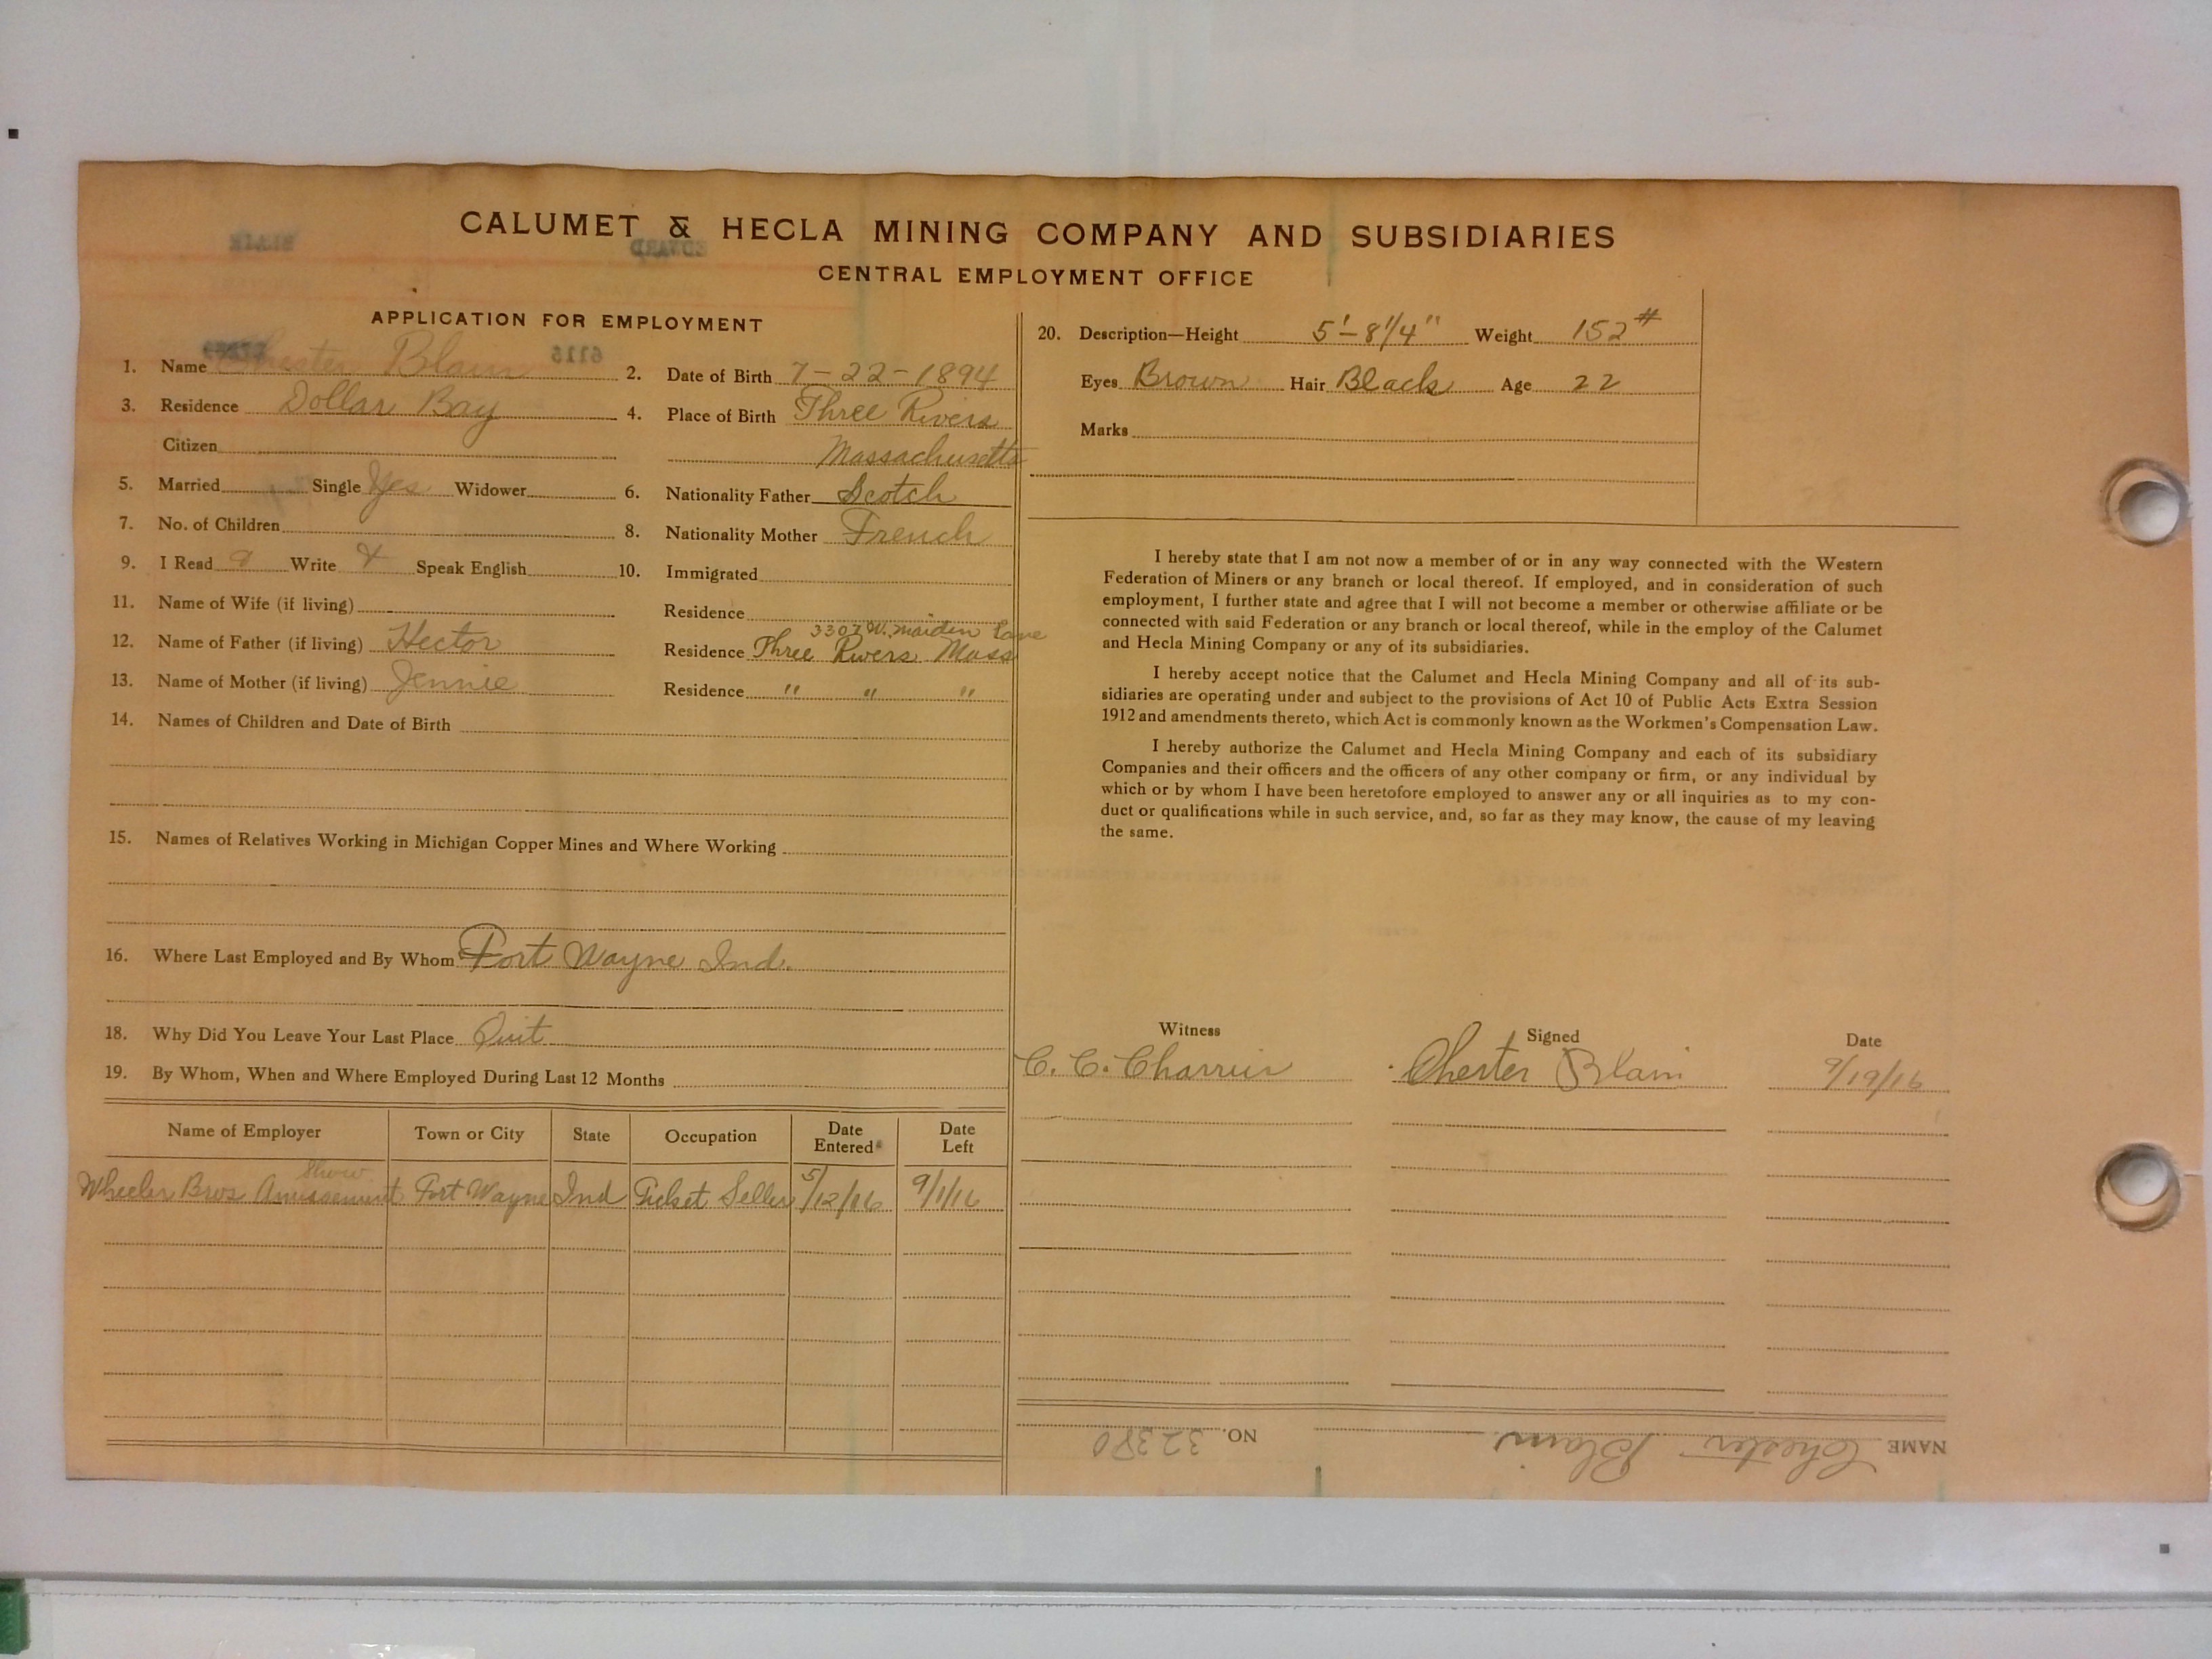 CALUMET & HECLA MINING COMPANY AND SUBSIDIARIES
CENTRAL EMPLOYMENT OFFICE
APPLICATION FOR EMPLOYMENT
1. Name Chester Blain 2. Date of Birth 7-22-1894
3. Residence Dollar Bay 4. Place of Birth Three Rivers
Citizen Massachusetts
5. Married Single Yes Widower 6. Nationality Father Scotch
7. No. of Children 8. Nationality Mother French
9. I Read Write Speak English 10. Immigrated
11. Name of Wife (if living) Residence
3307 W. Maiden Lane
12. Name of Father (if living) Hector Residence Three Rivers Mass
13. Name of Mother (if living) Jennie Residence " " "
14. Names of Children and Date of Birth
15. Names of Relatives Working in Michigan Copper Mines and Where Working
16. Where Last Employed and By Whom Fort Wayne Ind.
18. Why Did You Leave Your Last Place Quit
19. By Whom, When and Where Employed During Last 12 Months
Name of Employer Town or City State Occupation Date Entered Date Left
Show
Wheeler Bros Amusement Fort Wayne Ind Ticket Seller 5/12/06 9/1/16
20. Description—Height 5'-8 1/4" Weight 152 #
Eyes Brown Hair Black Age 22
Marks
I hereby state that I am not now a member of or in any way connected with the Western
Federation of Miners or any branch or local thereof. If employed, and in consideration of such
employment, I further state and agree that I will not become a member or otherwise affiliate or be
connected with said Federation or any branch or local thereof, while in the employ of the Calumet
and Hecla Mining Company or any of its subsidiaries.
I hereby accept notice that the Calumet and Hecla Mining Company and all of its sub-
sidiaries are operating under and subject to the provisions of Act 10 of Public Acts Extra Session
1912 and amendments thereto, which Act is commonly known as the Workmen's Compensation Law.
I hereby authorize the Calumet and Hecla Mining Company and each of its subsidiary
Companies and their officers and the officers of any other company or firm, or any individual by
which or by whom I have been heretofore employed to answer any or all inquiries as to my con-
duct or qualifications while in such service, and, so far as they may know, the cause of my leaving
the same.
Witness Signed Date
C. C. Chester Blain 9/19/16
NAME Chester Blain NO. 32380